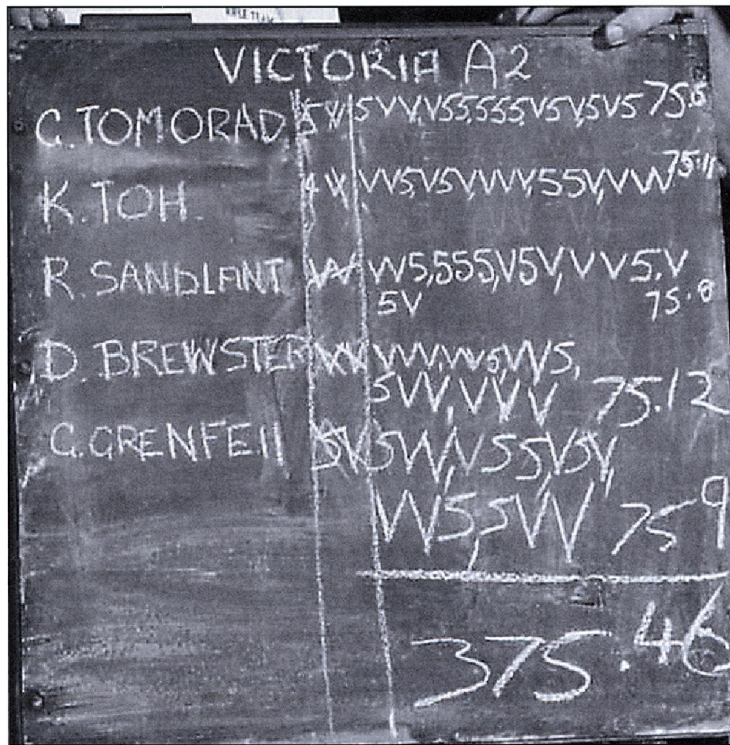 VICTORIA A2
C. TOMORAD 5V 5VV,V55,555,V5V,5V5 75.6
K. TOH. 4V VV5,V5V,VVV,55V,VVV 75.11
R. SANDLANT VV VV5,555,V5V,VVV5,V
5V 75.8
D. BREWSTER VV VVV,VV5,VV5,
5VV,VVV 75.12
G. GRENFEll 5V 5VV,V55,V5V,
VV5,5VV 75 9
375.46